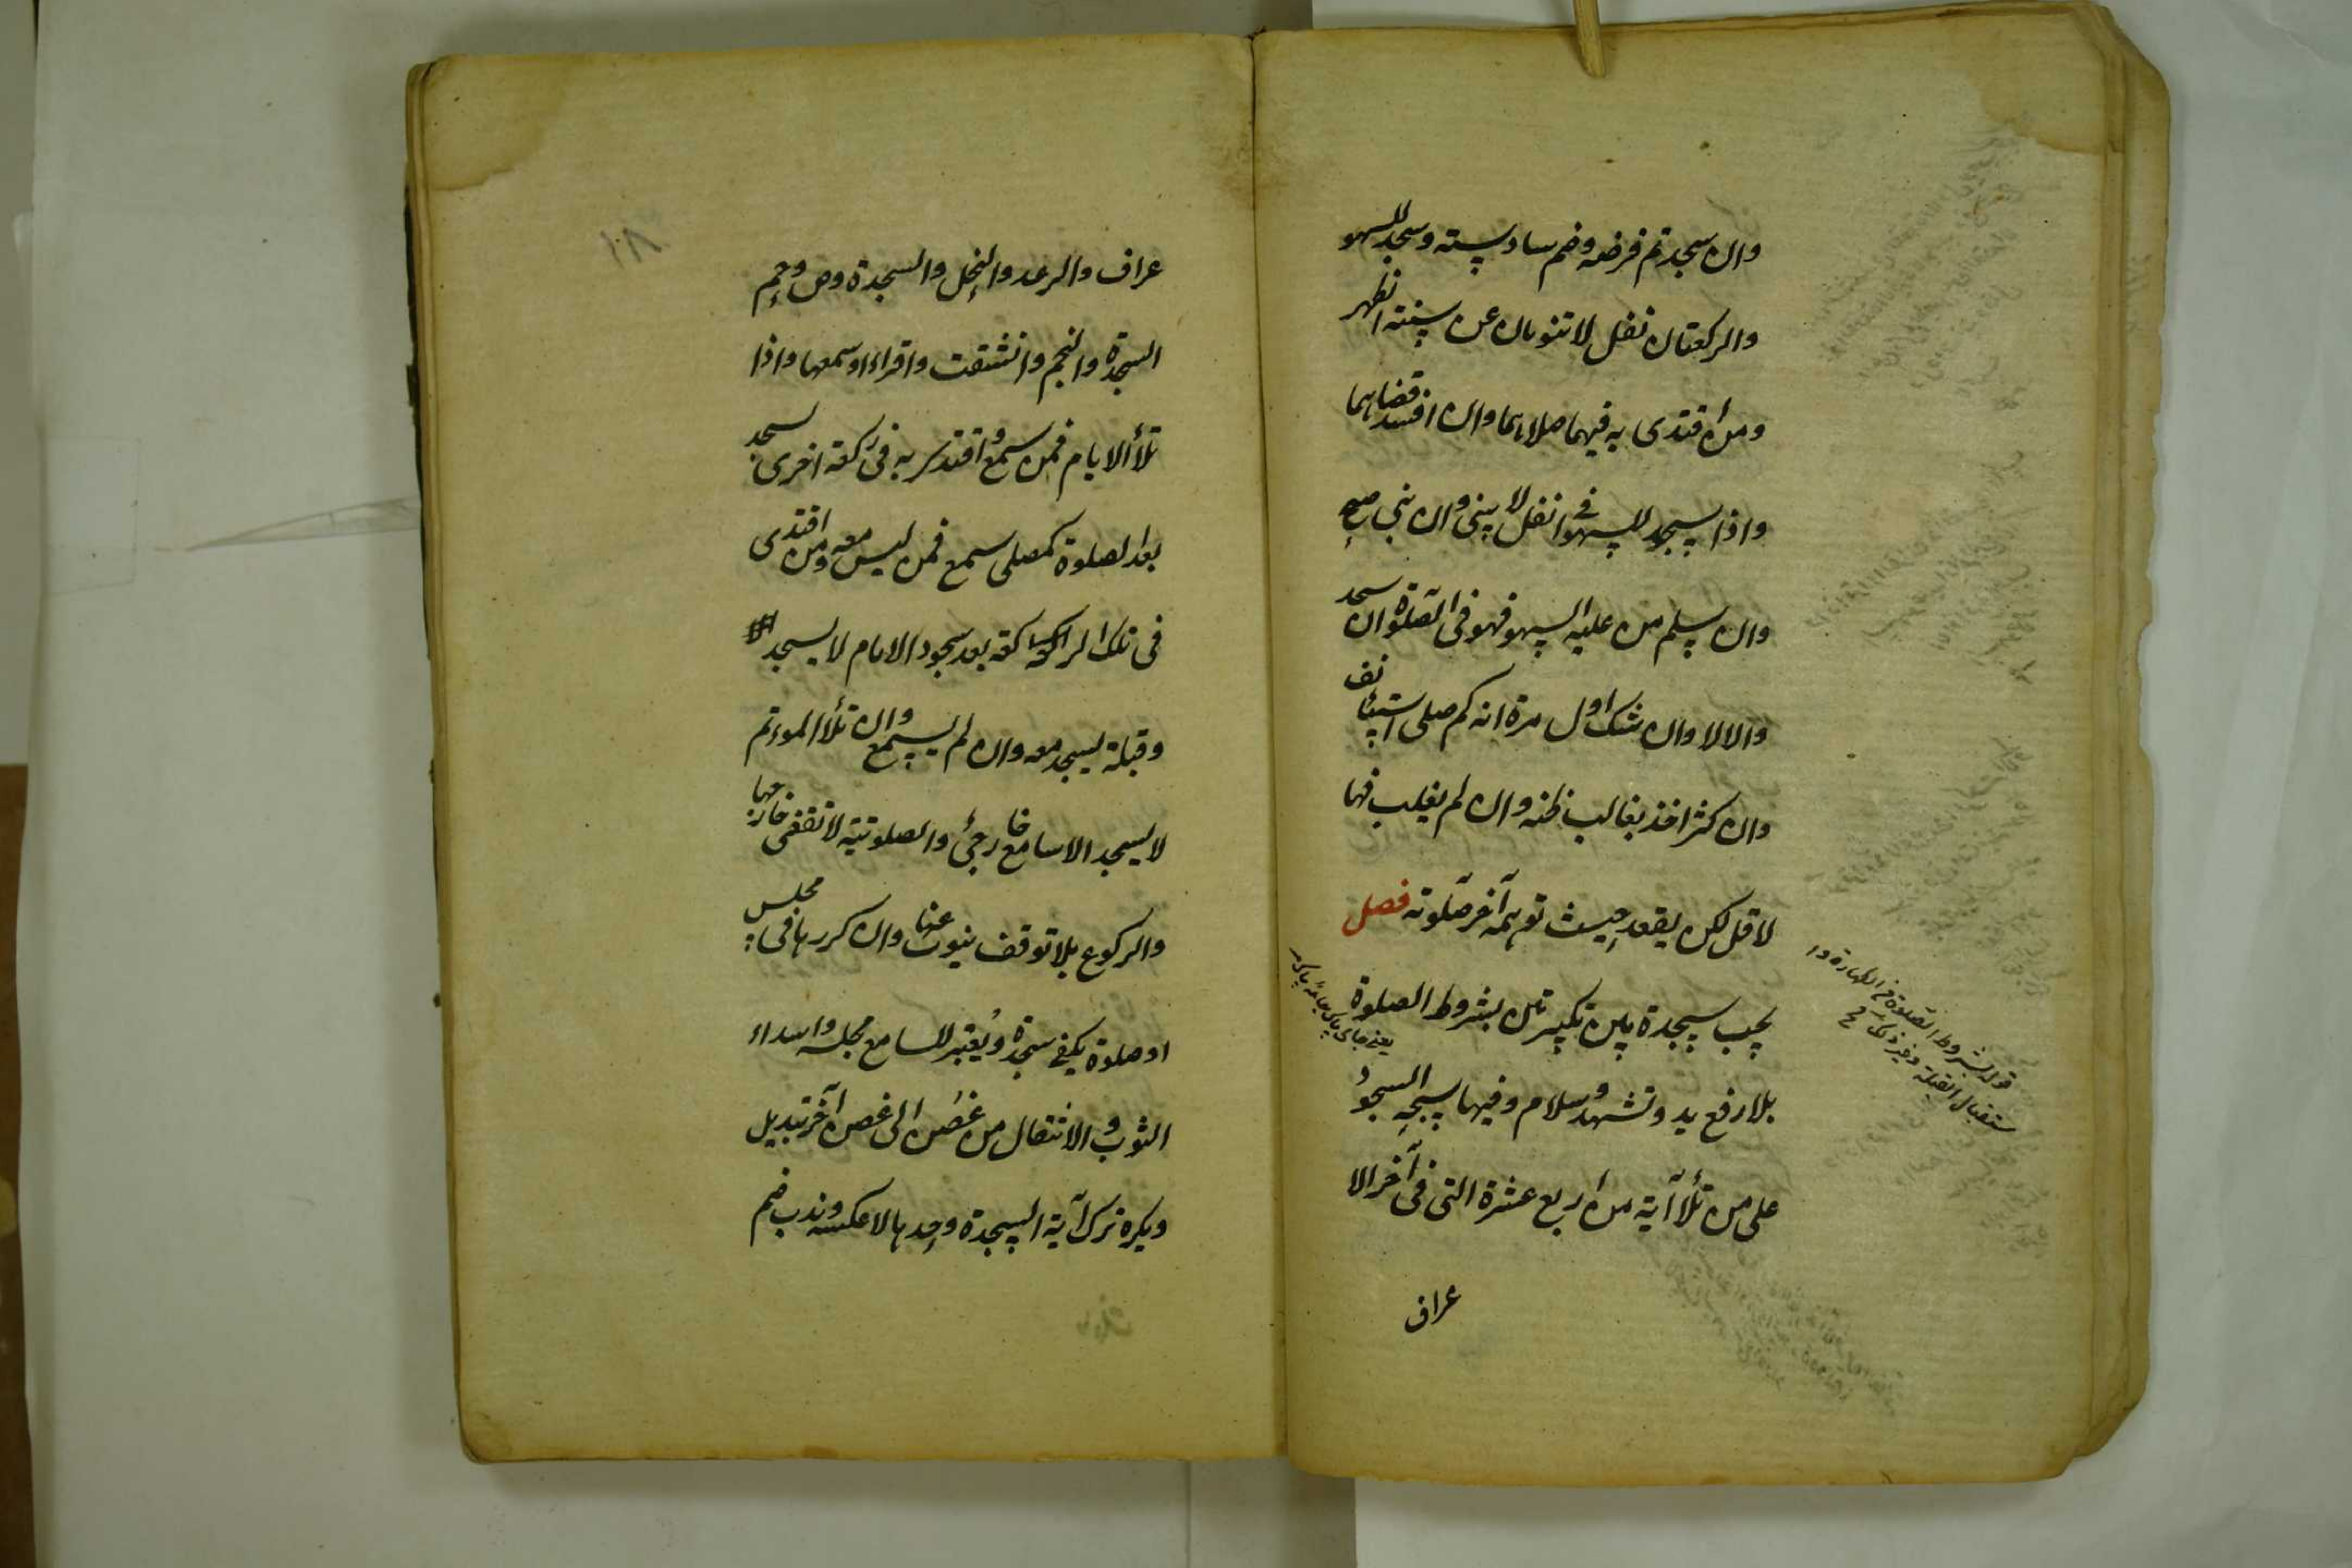 وان سجد تم فرضه وضم سادسته وسجد للسهو
والركعتان نفل لا تنوبان عن سنته الظهر
ومن اقتدى به فيهما صلاهما وان افسد قضاهما
واذا سجد للسهو فى النفل لا يبنى وان بنى صح
وان سلم من عليه السهو فهو فى الصلوة ان سجد
والا لا وان شك اول مرة انه كم صلى استيانف
وان كثر اخذ بغالب ظنه وان لم يغلب فهما
لاقل لكن يقعد حيث توهمه آخر صلوته فصل
يجب سجدة بين تكبيرتين بشروط الصلوة
بلا رفع يد وتشهد وسلام وفيها سبحه السجود
على من تلا آية من اربع عشرة التى فى آخر الا
عراف
قوله بشروط الصلوة من الطهارة وا
ستقبال القبلة وغير ذلك
يعنى جاى پاك جامه پاك
١٨
عراف والرعد والنحل والسجدة وص وحم
السجدة والنجم وانشقت واقراء او سمعها واذا
تلا الامام فمن سمع واقتدى به فى ركعة اخرى سجد
بعد الصلوة كمصلى سمع فمن ليس معه ومن اقتدى
فى تلك الركعة بعد سجود الامام لا يسجد
وقبلة يسجد معه وان لم يسمع وان تلا الموءتم
لا يسجد الا سامع خارجى والصلوتية لا تقضى خارجها
والركوع بلا توقف ينوب عنها وان كررها فى مجلس
او صلوة يكفى سجدة ويعتبر للسامع مجلسه واسداء
الثوب والانتقال من غصن الى غصن آخر تبديل
ويكره ترك آية السجدة وحدها لا عكسه وندب ضم